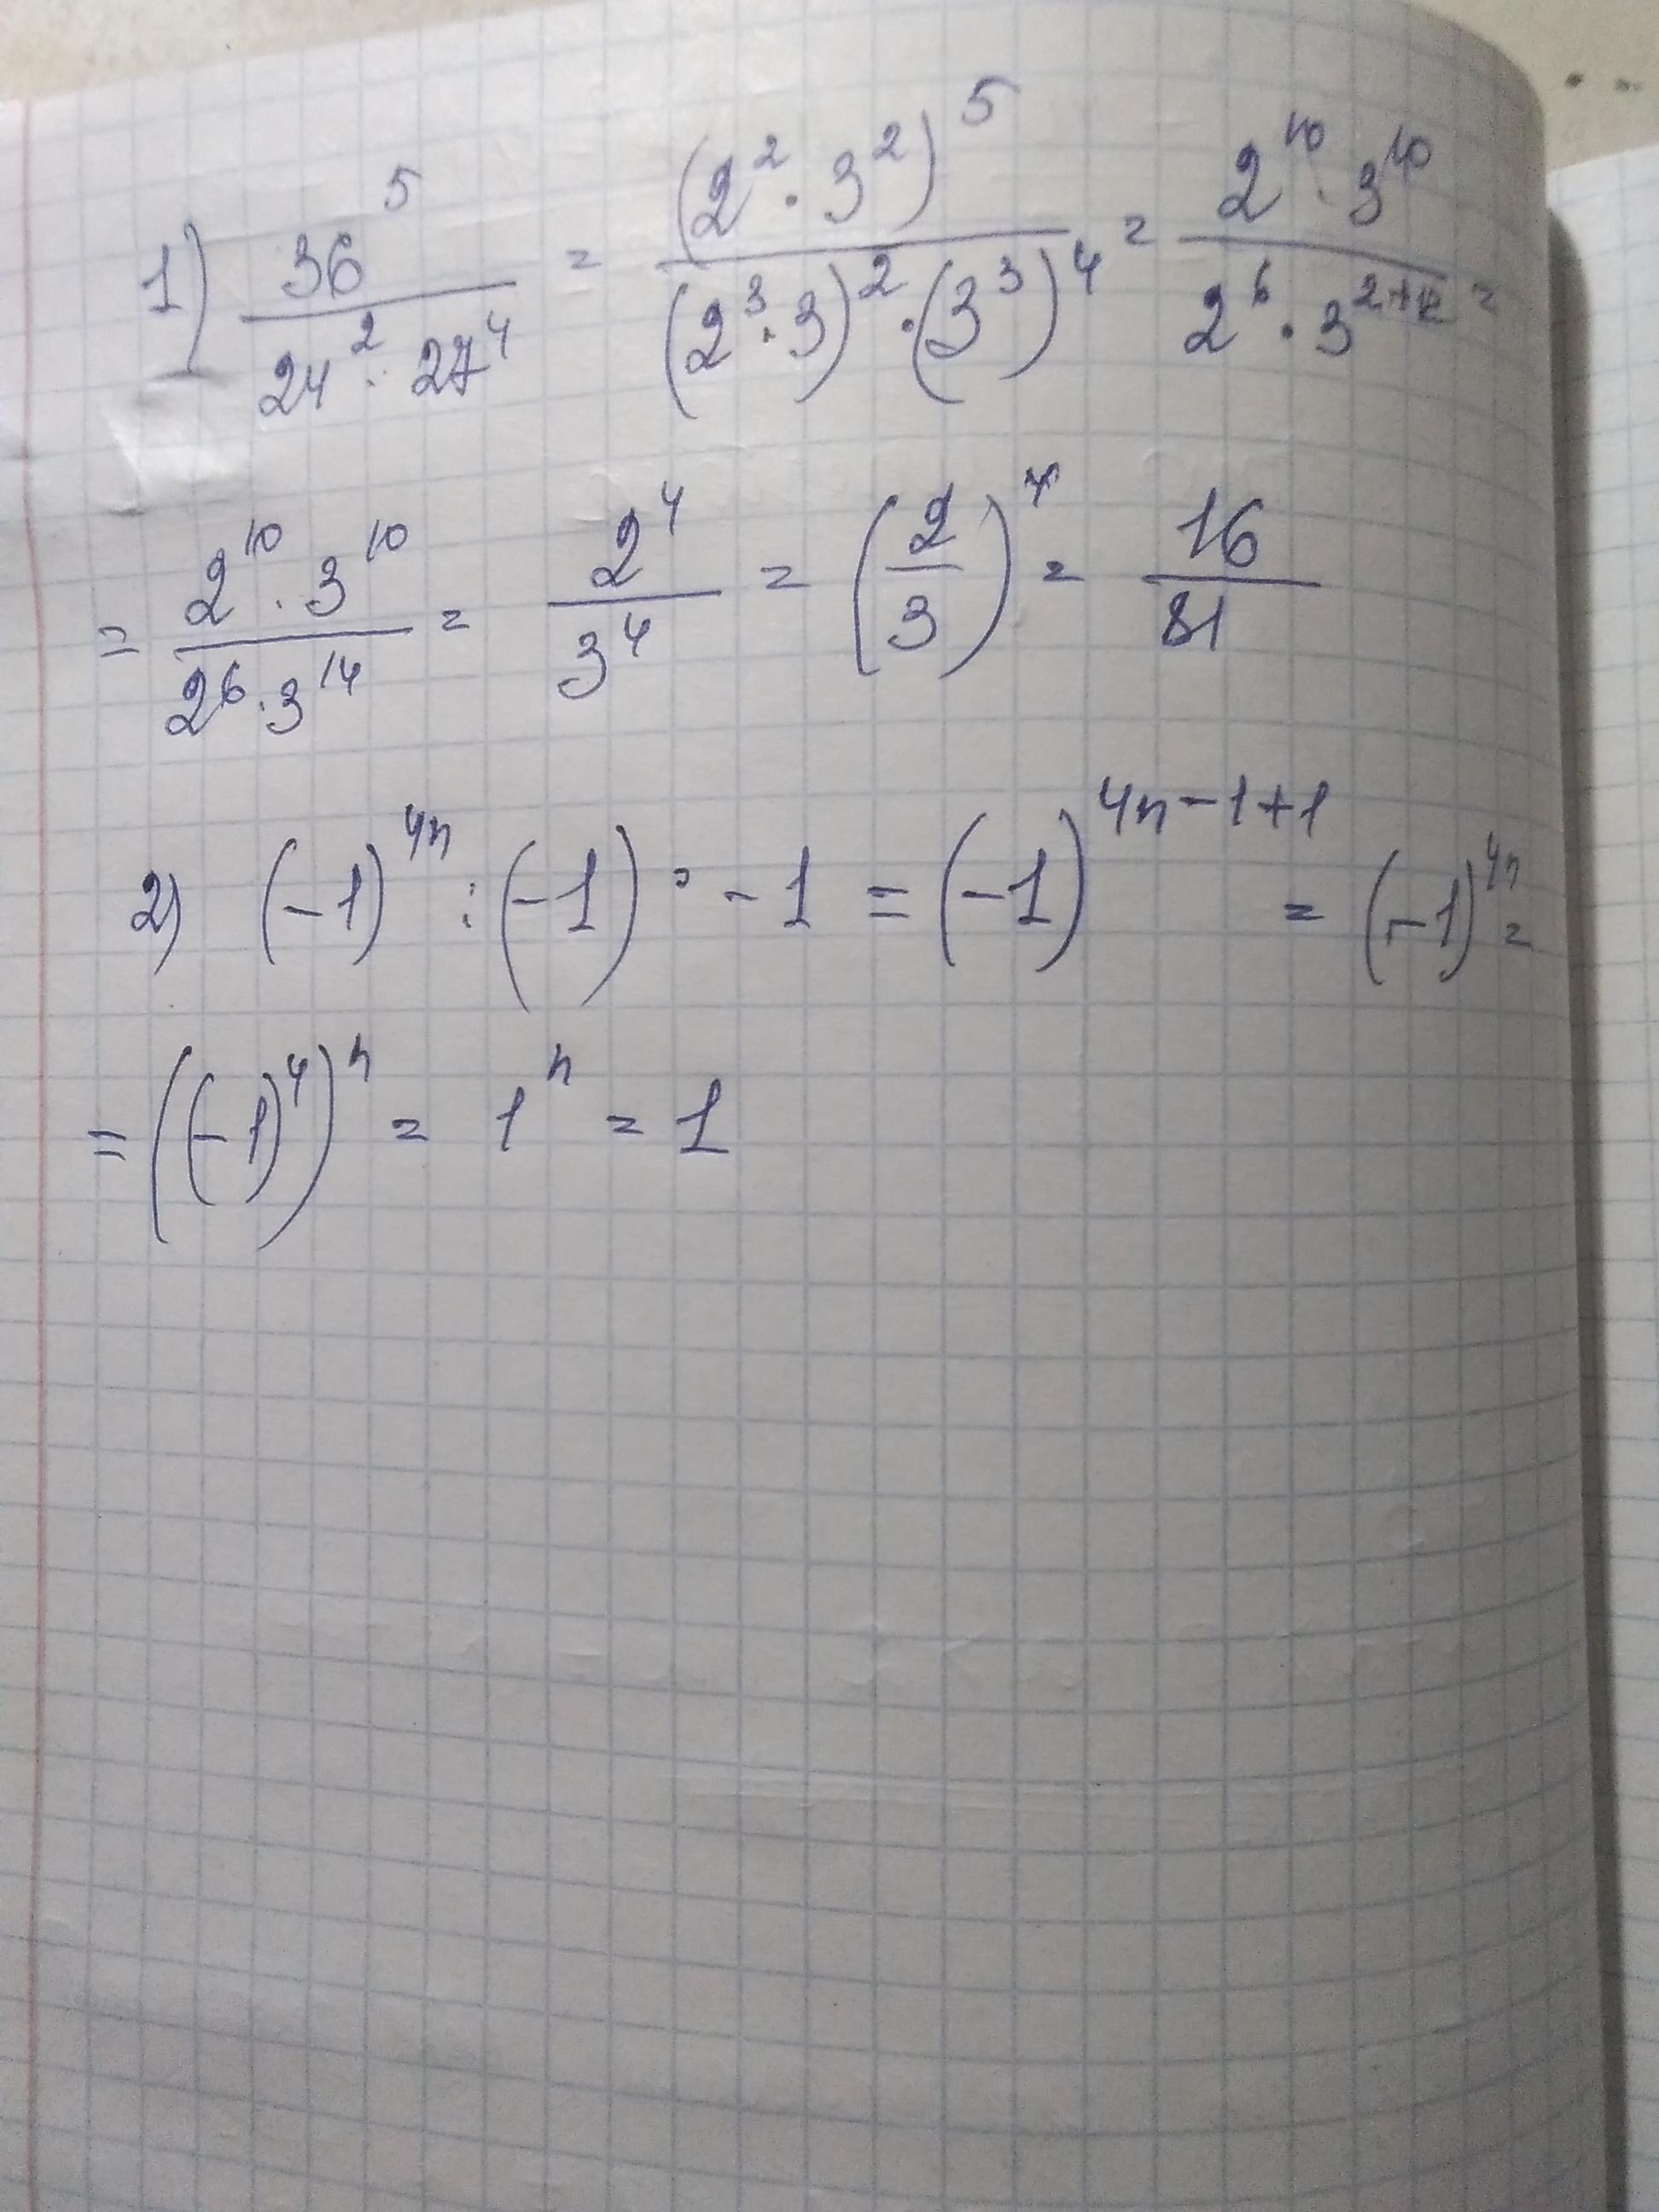 1) 36^5 / (24^2 · 27^4) = (2^2 · 3^2)^5 / ((2^3 · 3)^2 · (3^3)^4) = 2^10 · 3^10 / (2^6 · 3^(2+12)) =
= 2^10 · 3^10 / (2^6 · 3^14) = 2^4 / 3^4 = (2/3)^4 = 16/81
2) (-1)^4n : (-1) · -1 = (-1)^(4n-1+1) = (-1)^4n =
= ((-1)^4)^n = 1^n = 1